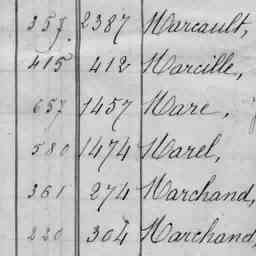 357. 2387 Marcault,
415 412 Marcille,
657 1457 Mare,
580 1474 Marel,
361 274 Marchand,
220 304 Marchand,